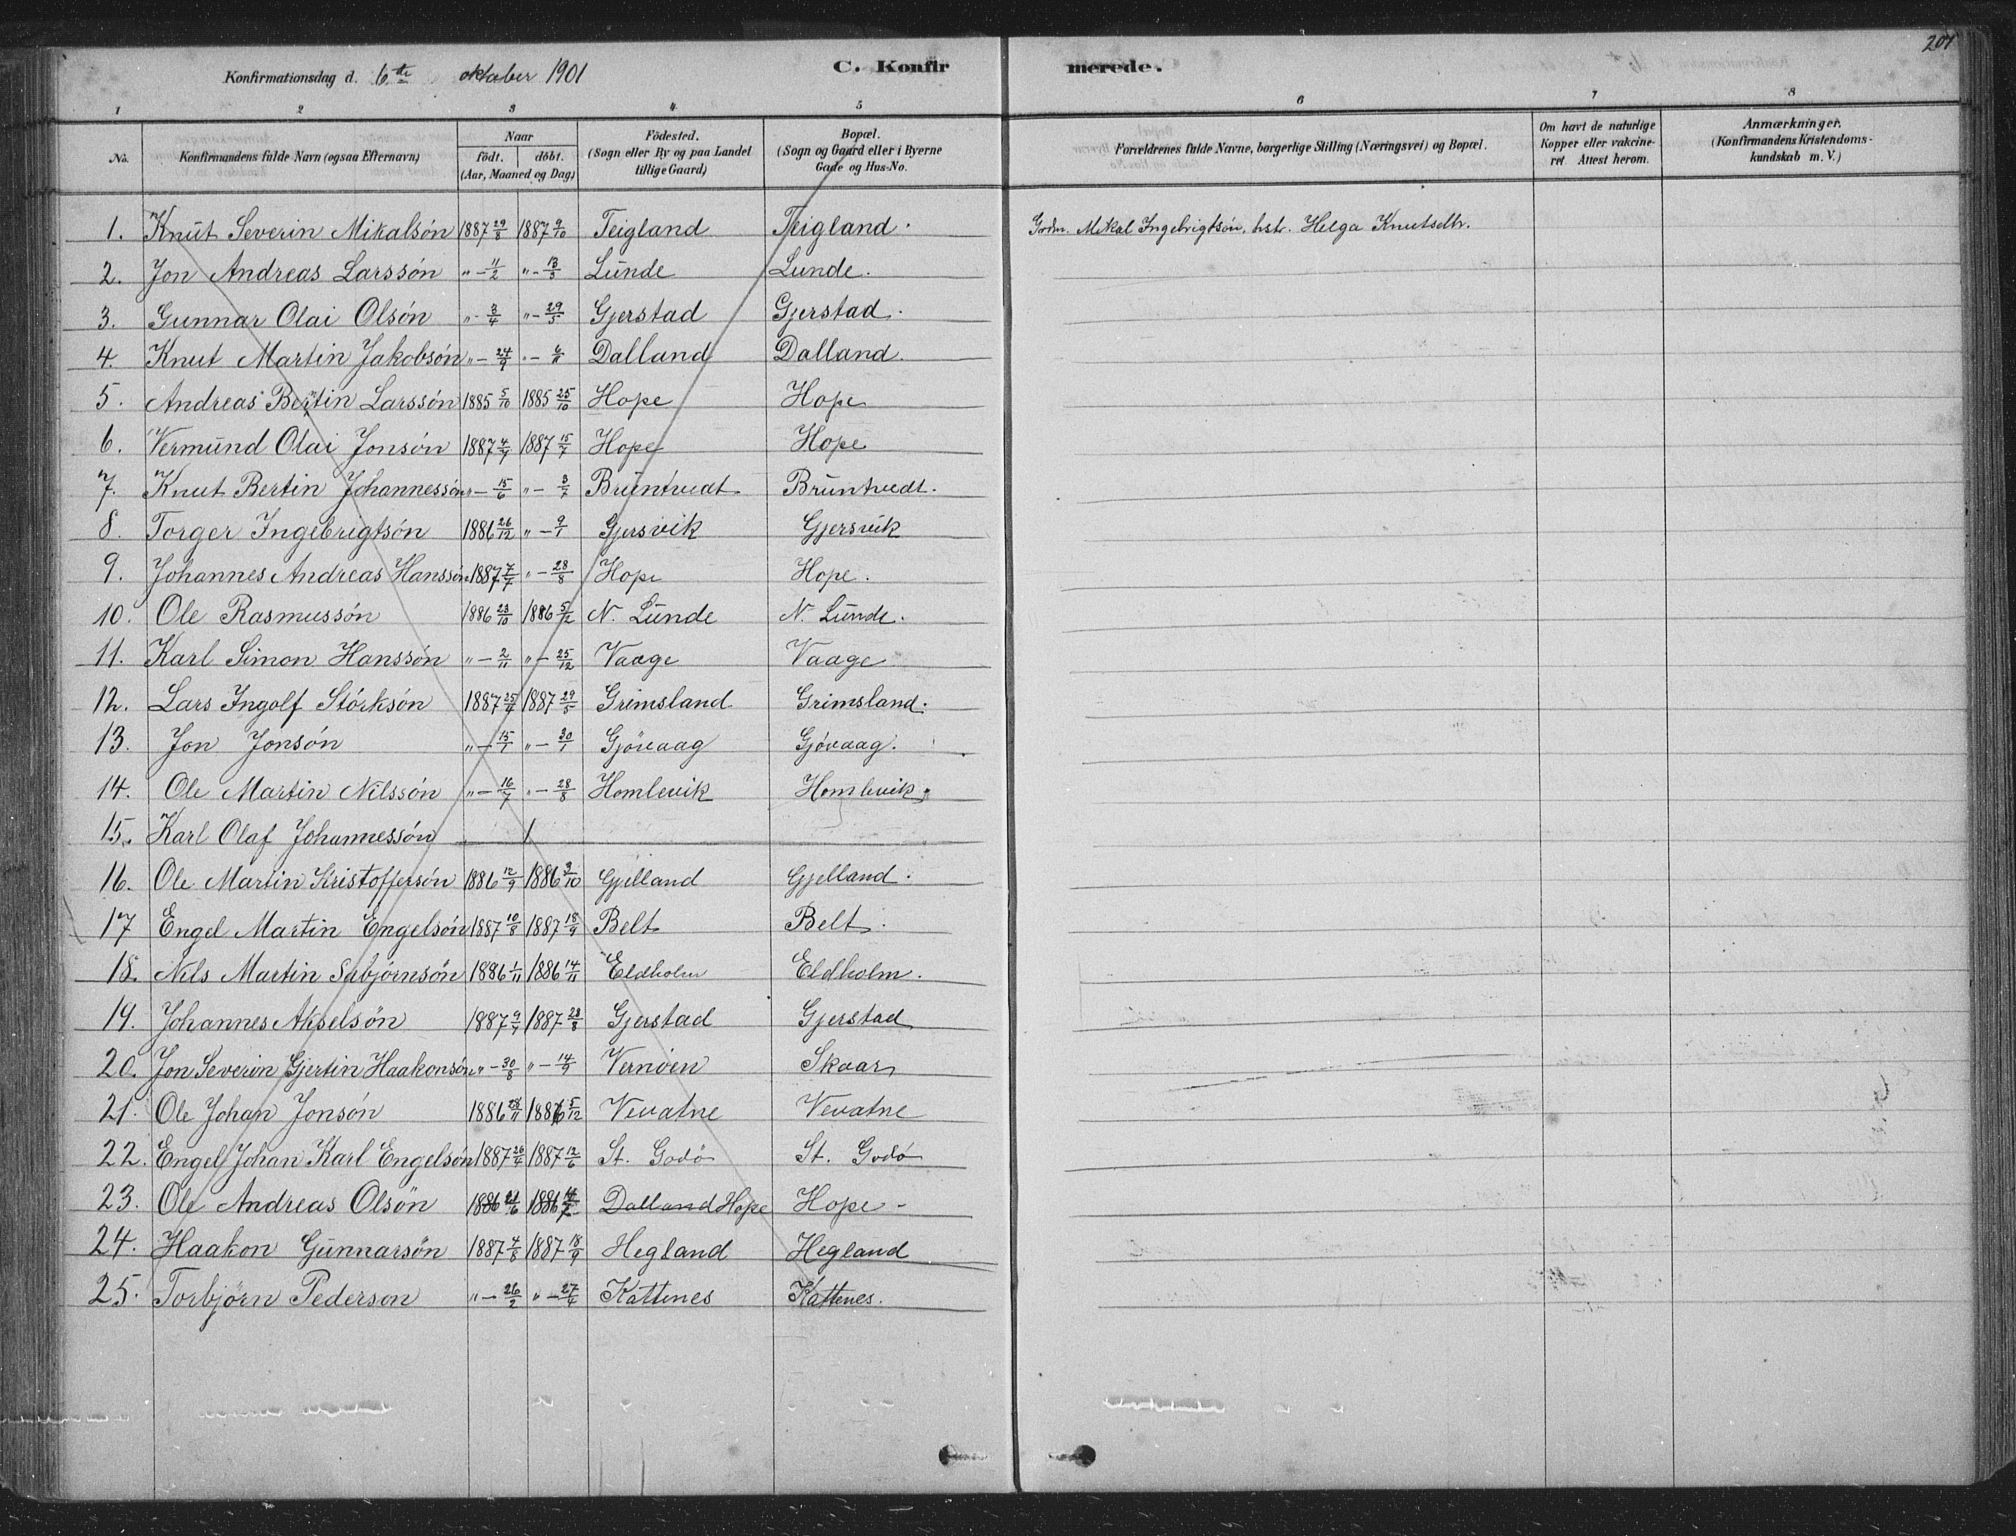 201
Konfirmationsdag d. 6te oktober 1901 C. Konfirmerede.
1 2 3 4 5 6 7 8
No. Konfirmandens fulde Navn (ogsaa Efternavn) Naar født. døbt. (Aar, Maaned og Dag) Födested. (Sogn eller By og paa Landet tillige Gaard) Bopæl. (Sogn og Gaard eller i Byerne Gade og Hus-No. Forældrenes fulde Navne, borgerlige Stilling (Næringsvei) og Bopæl. Om havt de naturlige Kopper eller vakcineret Attest herom. Anmærkninger. (Konfirmandens Kristendomskundskab m. V.)
1. Knut Severin Mikalsön 1887 29/8 1887 9/10 Teigland Teigland. Grdm. Mikal Ingebrigtsön, hstr. Helga Knutsdtr.
2. Jon Andreas Larssön " - 11/2 " - 13/3 Lunde Lunde.
3. Gunnar Olai Olsön " - 3/4 " - 29/5 Gjerstad Gjerstad.
4. Knut Martin Jakobsön " - 24/9 " - 6/11 Dalland Dalland.
5. Andreas Bertin Larssön 1885 5/10 1885 25/10 Hope Hope
6. Vermund Olai Jonsön 1887 4/7 1887 15/7 Hope Hope
7. Knut Bertin Johannessön " - 15/6 " - 3/7 Bruntvedt Bruntvedt.
8. Torger Ingebrigtsön 1886 26/12 " - 9/1 Gjersvik Gjersvik
9. Johannes Andreas Hanssön 1887 7/7 " - 28/8 Hope Hope.
10. Ole Rasmussön 1886 23/10 1886 5/12 N. Lunde N. Lunde.
11. Karl Simon Hanssön " - 2/11 " - 25/12 Vaage Vaage
12. Lars Ingolf Störksön 1887 25/4 1887 29/5 Grimsland Grimsland.
13. Jon Jonsön " - 15/1 " - 30/1 Gjövaag Gjövaag.
14. Ole Martin Nilssön " - 16/7 " - 28/8 Homlevik Homlevik
15. Karl Olaf Johannessön
16. Ole Martin Kristoffersön 1886 12/9 1886 3/10 Gjelland Gjelland.
17 Engel Martin Engelsön 1887 10/8 1887 18/9 Belt Belt.
18. Nils Martin Sabjörnsön 1886 1/11 1886 14/11 Eldholm Eldholm.
19. Johannes Akselsön 1887 9/7 1887 28/8 Gjerstad Gjerstad
20. Jon Severin Gjertin Haakonsön " - 30/8 " - 14/9 Vernöen Skaar
21. Ole Johan Jonsön 1886 28/11 1886 5/12 Vevatne Vevatne
22. Engel Johan Karl Engelsön 1887 26/4 1887 12/6 St. Godö St. Godö
23. Ole Andreas Olsön 1886 21/6 1886 4/7 Dalland Hope Hope -
24. Haakon Gunnarsön 1887 4/8 1887 18/9 Hegland Hegland
25. Torbjörn Pederson " - 26/2 " - 27/4 Kattenes Kattenes.